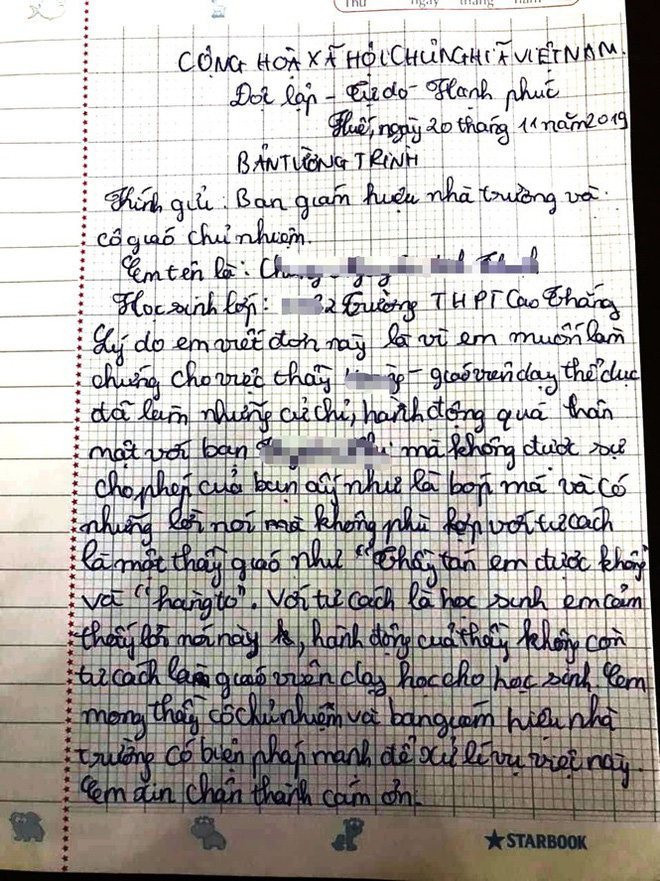 Thứ ngày tháng năm
CỘNG HOÀ XÃ HỘI CHỦ NGHĨA VIỆT NAM.
Độc lập - Tự do - Hạnh phúc
Huế, ngày 20 tháng 11 năm 2019
BẢN TƯỜNG TRÌNH
Kính gửi : Ban giám hiệu nhà trường và
cô giáo chủ nhiệm.
Em tên là :
Học sinh lớp : 2 Trường THPT Cao Thắng
Lý do em viết đơn này là vì em muốn làm
chứng cho việc thầy - giáo viên dạy thể dục
đã làm những cử chỉ, hành động quá thân
mật với bạn mà không được sự
cho phép của bạn ấy như là bóp má và có
những lời nói mà không phù hợp với tư cách
là một thầy giáo như "Thầy tán em được không"
và "hàng to". Với tư cách là học sinh em cảm
thấy lời nói này, hành động của thầy không còn
tư cách làm giáo viên dạy học cho học sinh. Em
mong thầy cô chủ nhiệm và ban giám hiệu nhà
trường có biện pháp mạnh để xử lí vụ việc này.
Em xin chân thành cảm ơn.
STARBOOK